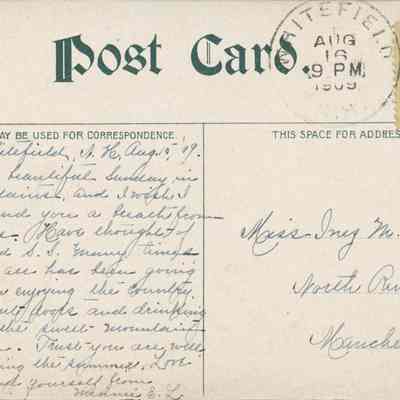 Post Card.
RITEFIELD
AUG
16
9 PM
1909
AY BE USED FOR CORRESPONDENCE.
THIS SPACE FOR ADDRES
itefield, N. H, Aug 15, '09.
beautiful Sunday in
tains, and I wish I
nd you a breath from
Have thought of
d S. S. many times
has been going
enjoying the country,
out doors and drinking
sweet mountain
Trust you are well
ing the summer. Love
d yourself from
Minnie E. L
Miss Inez M.
North Riv
Manche